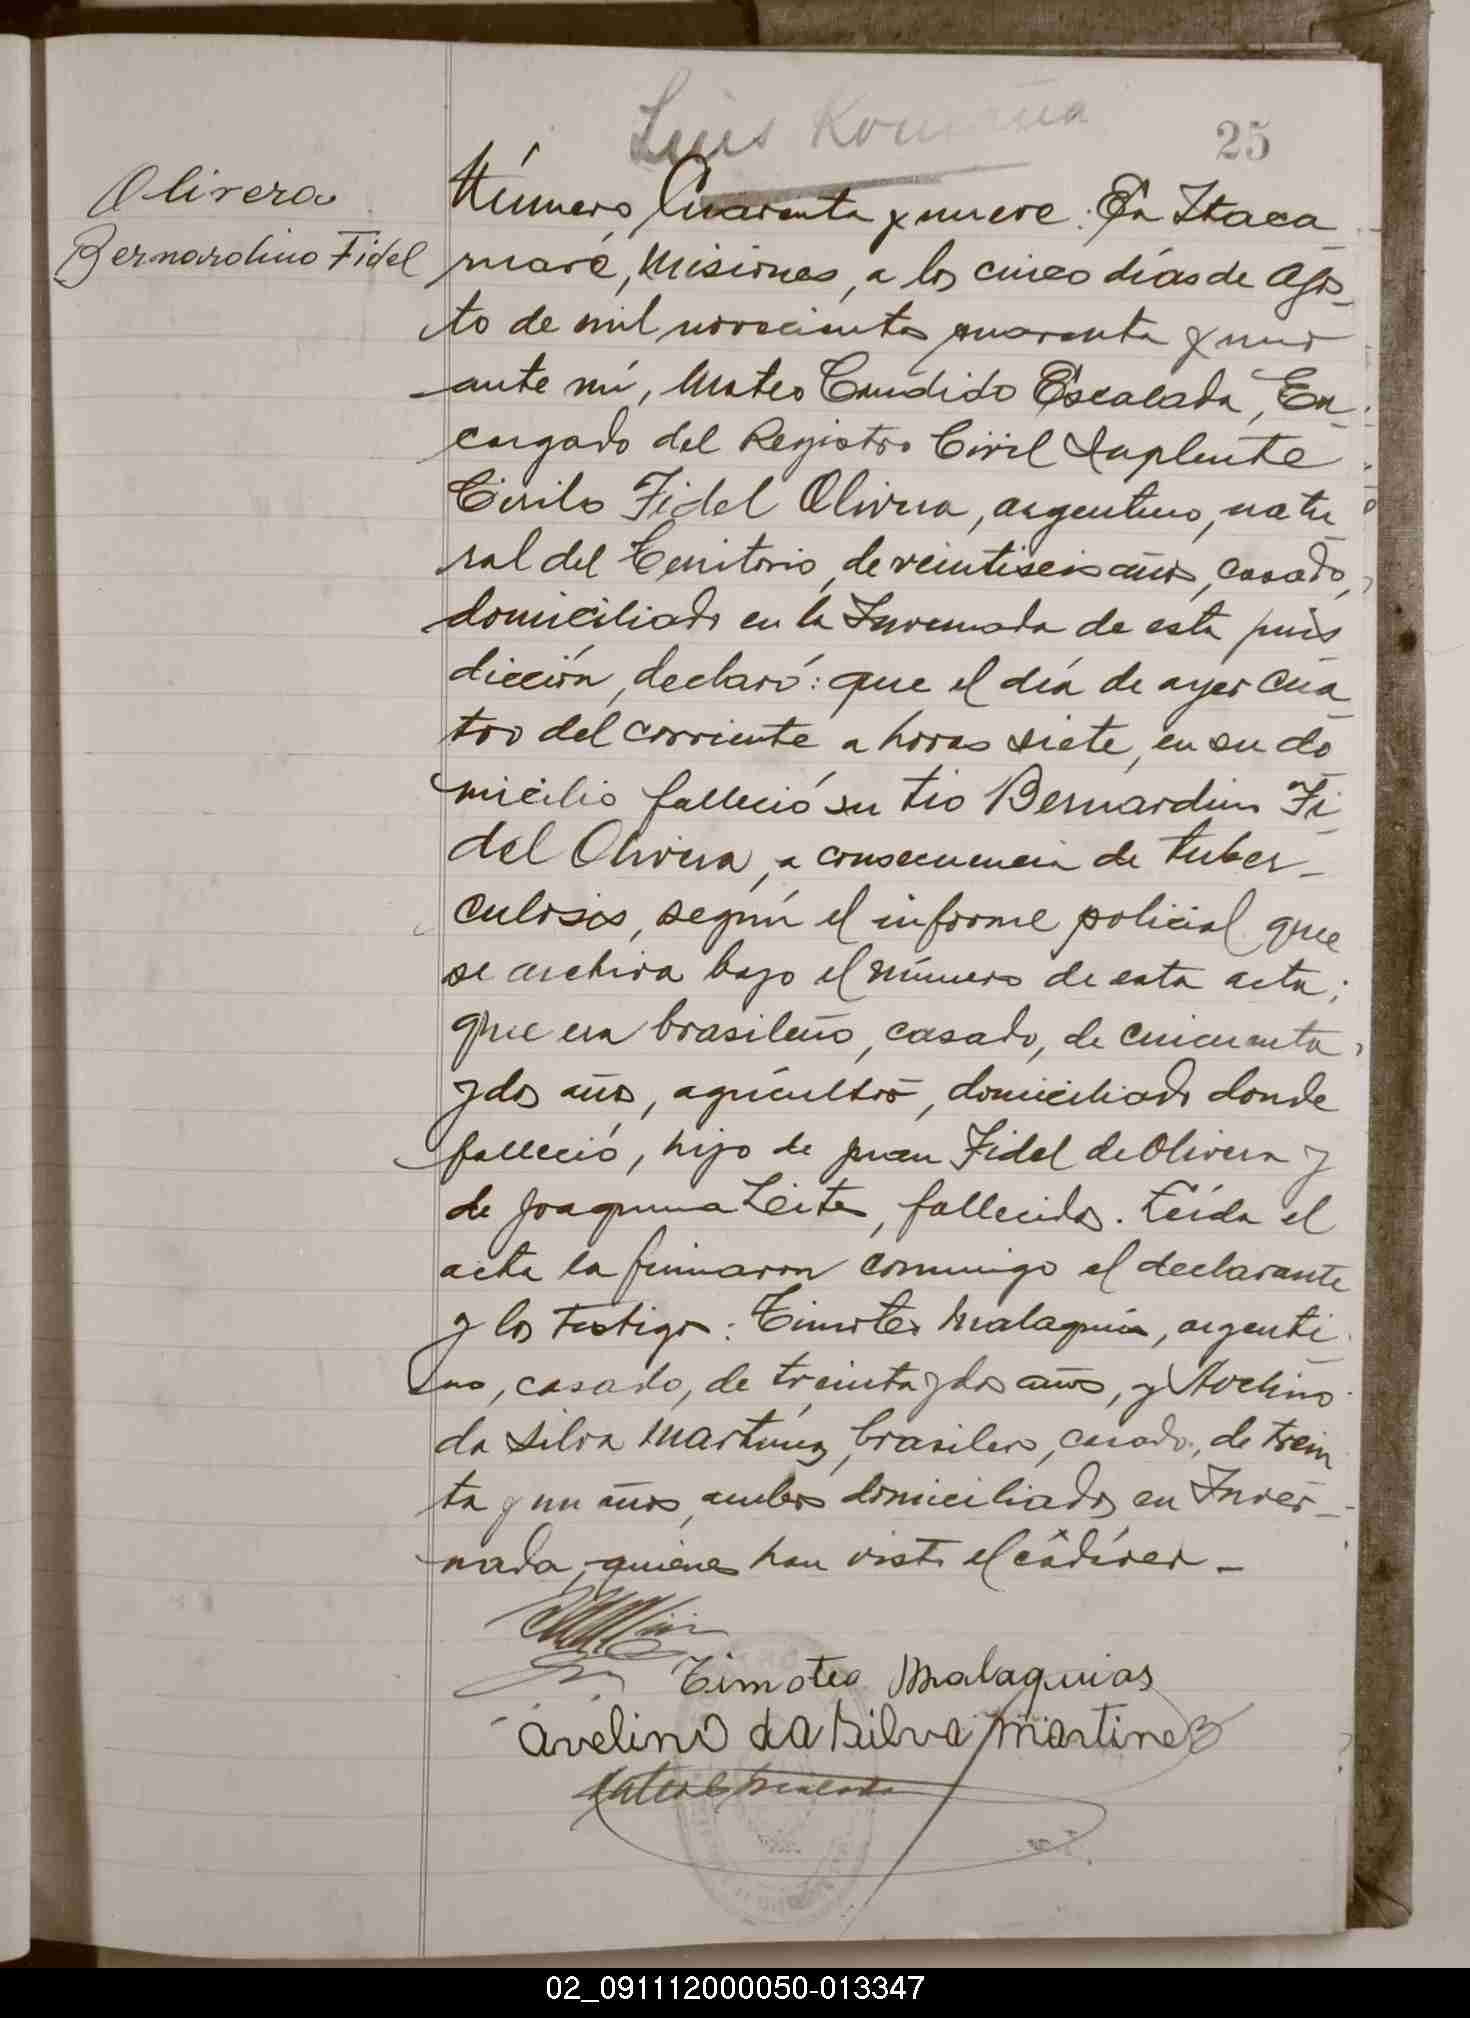 Luis
25
Olivera
Bernardino Fidel
Número Cuarenta y nueve: En Itaca
ruaré, Misiones, a los cinco días de Agos_
to de mil novecientos cuarenta y
ante mí, Mateo Candido Escalada, En_
cargado del Registro Civil Suplente
Cirilo Fidel Olivera, argentino, natu
ral del Territorio, de veintiseis años, casado,
domiciliado en la Invernada de esta juris
dicción, declaró: que el día de ayer cua_
tro del corriente a horas siete, en su do_
micilio falleció su tio Bernardino Fi_
del Olivera, a consecuencia de tuber_
culosis, según el informe policial que
se archiva bajo el número de esta acta;
que era brasileño, casado, de cincuenta
y dos años, agricultor, domiciliado donde
falleció, hijo de Juan Fidel de Olivera y
de Joaquina Leites, fallecidos. Leída el
acta la firmaron conmigo el declarante
y los testigos: Timoteo Malaquias, argenti_
no, casado, de treinta y dos años, y Avelino
da Silva Martinez, brasilero, casado, de trein
ta y un años, ambos domiciliados en Inver_
nada, quienes han visto el cadáver._
Timoteo Malaquias
Avelino da Silva Martinez
Mateo C Escalada
02_091112000050-013347